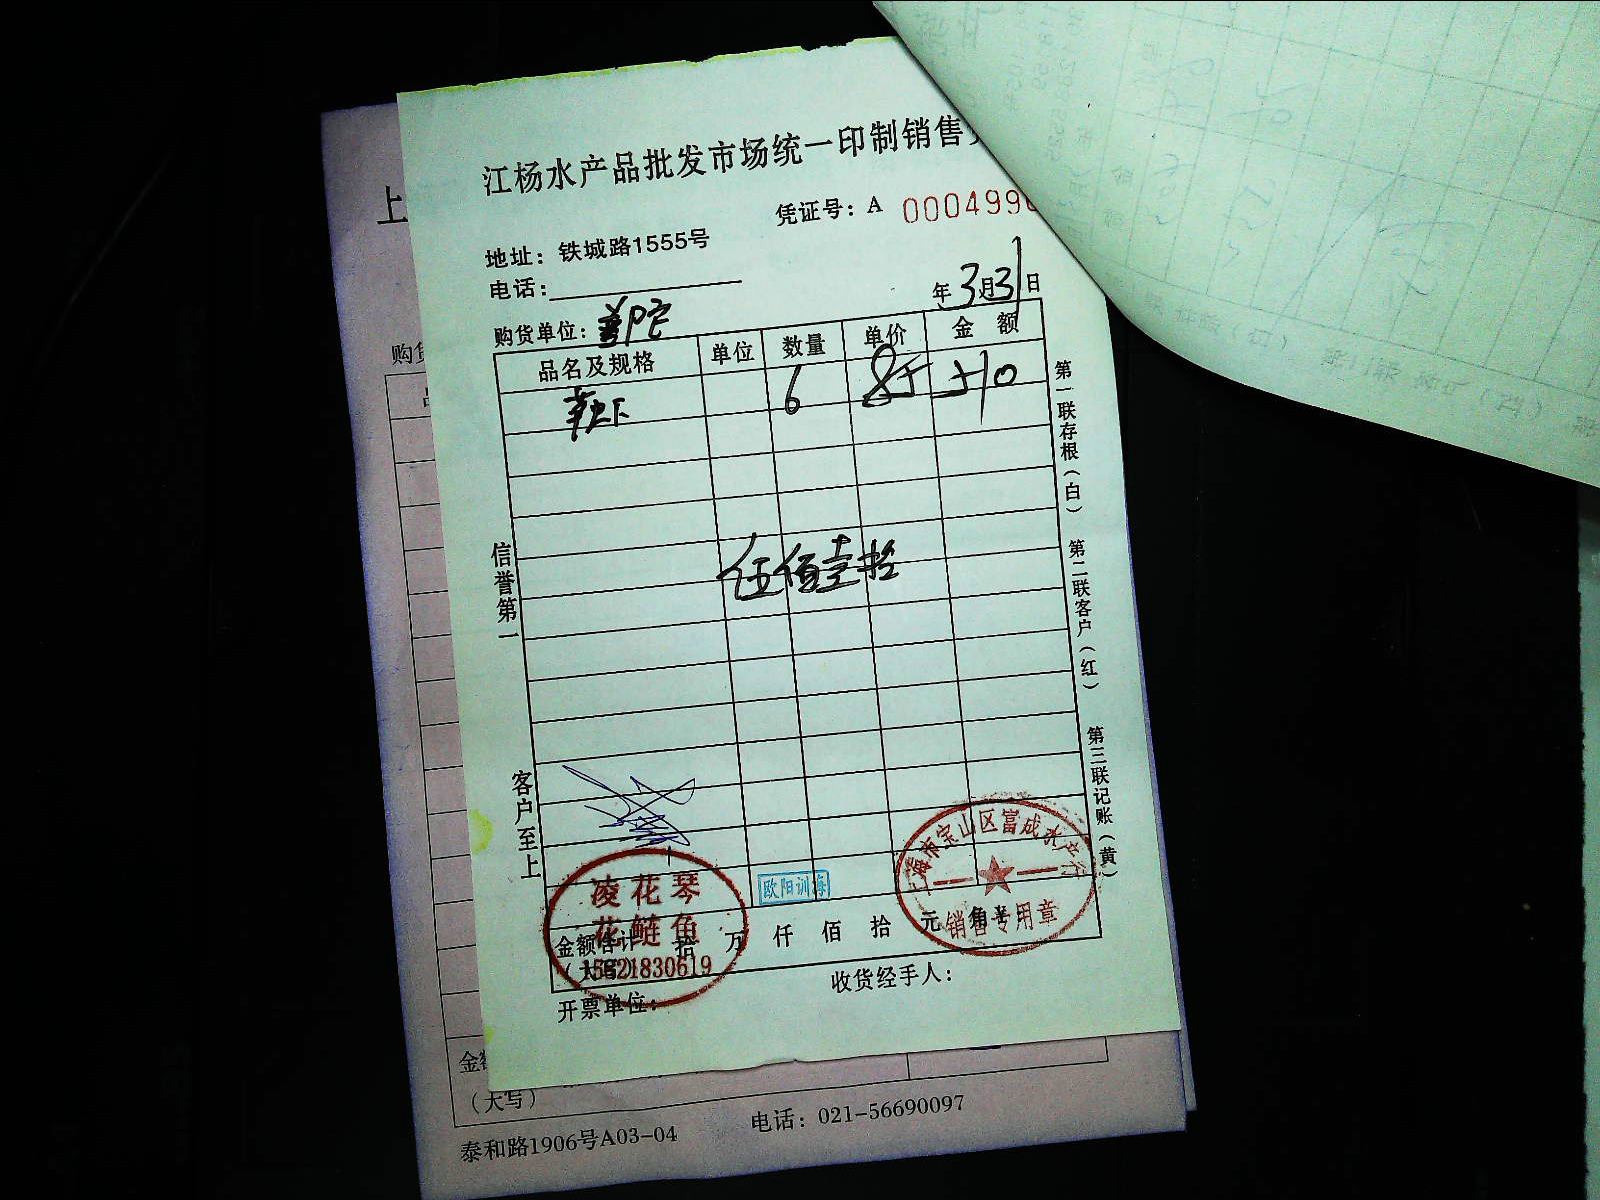 江杨水产品批发市场统一印制销售
凭证号：A 000499
地址：铁城路1555号
电话：
年3月31日
购货单位：普陀
品名及规格 单位 数量 单价 金额
6 85 510
伍佰壹拾
信誉第一
客户至上
第一联存根（白）
第二联客户（红）
第三联记账（黄）
凌花琴
花鲢鱼
15821830619
欧阳训海
上海市宝山区富成水产行
销售专用章
金额合计（大写） 拾 万 仟 佰 拾 元 角
开票单位：
收货经手人：
上
购货
金额
（大写）
泰和路1906号A03-04
电话：021-56690097